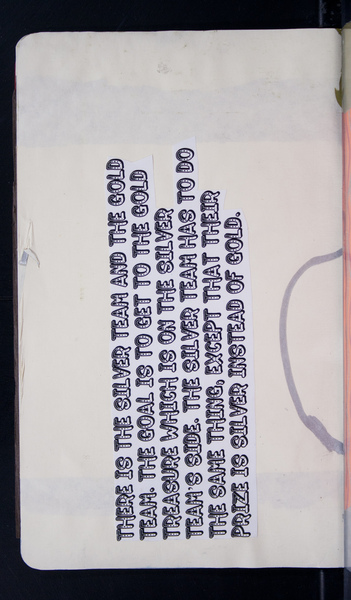 THERE IS THE SILVER TEAM AND THE GOLD
TEAM. THE GOAL IS TO GET TO THE GOLD
TREASURE WHICH IS ON THE SILVER
TEAM'S SIDE. THE SILVER TEAM HAS TO DO
THE SAME THING, EXCEPT THAT THEIR
PRIZE IS SILVER INSTEAD OF GOLD.